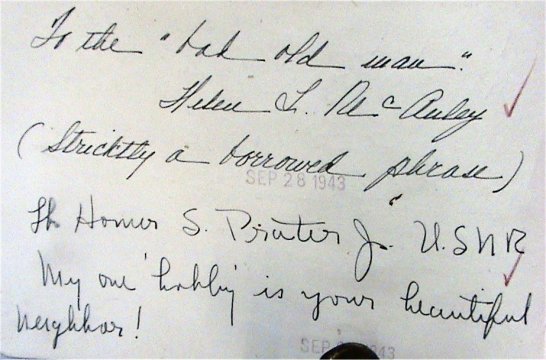 To the "bad old man".
Helen L. McAuley
(Strictly a borrowed phrase)
SEP 28 1943
Homer S. Prater Jr. U.S.N.R
My one 'hobby' is your beautiful
neighbor!
SEP 1943